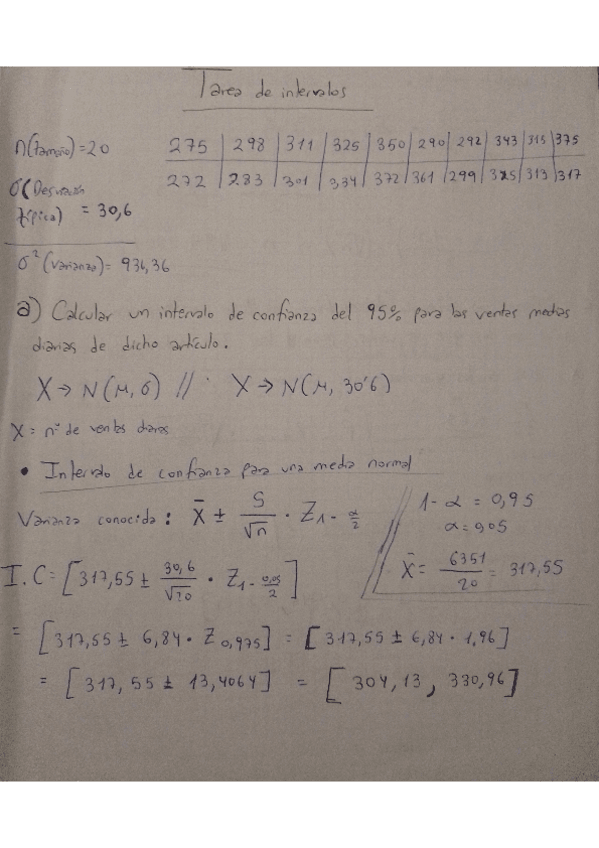 Tarea de intervalos
n(tamaño)=20
275 | 298 | 311 | 325 | 350 | 290 | 292 | 343 | 315 | 375
272 | 283 | 301 | 334 | 372 | 361 | 299 | 325 | 313 | 317
σ(Desviación típica) = 30,6
σ² (varianza) = 936,36
a) Calcular un intervalo de confianza del 95% para las ventas medias
diarias de dicho artículo.
X → N(μ, σ) // X → N(μ, 30'6)
X = nº de ventas diarias
• Intervalo de confianza para una media normal
Varianza conocida: X̄ ± S/√n · Z1-α/2
1-α = 0,95
α = 0,05
X̄ = 6351/20 = 317,55
I.C = [317,55 ± 30,6/√20 · Z1-0,05/2]
= [317,55 ± 6,84 · Z0,975] = [317,55 ± 6,84 · 1,96]
= [317,55 ± 13,4064] = [304,13, 330,96]